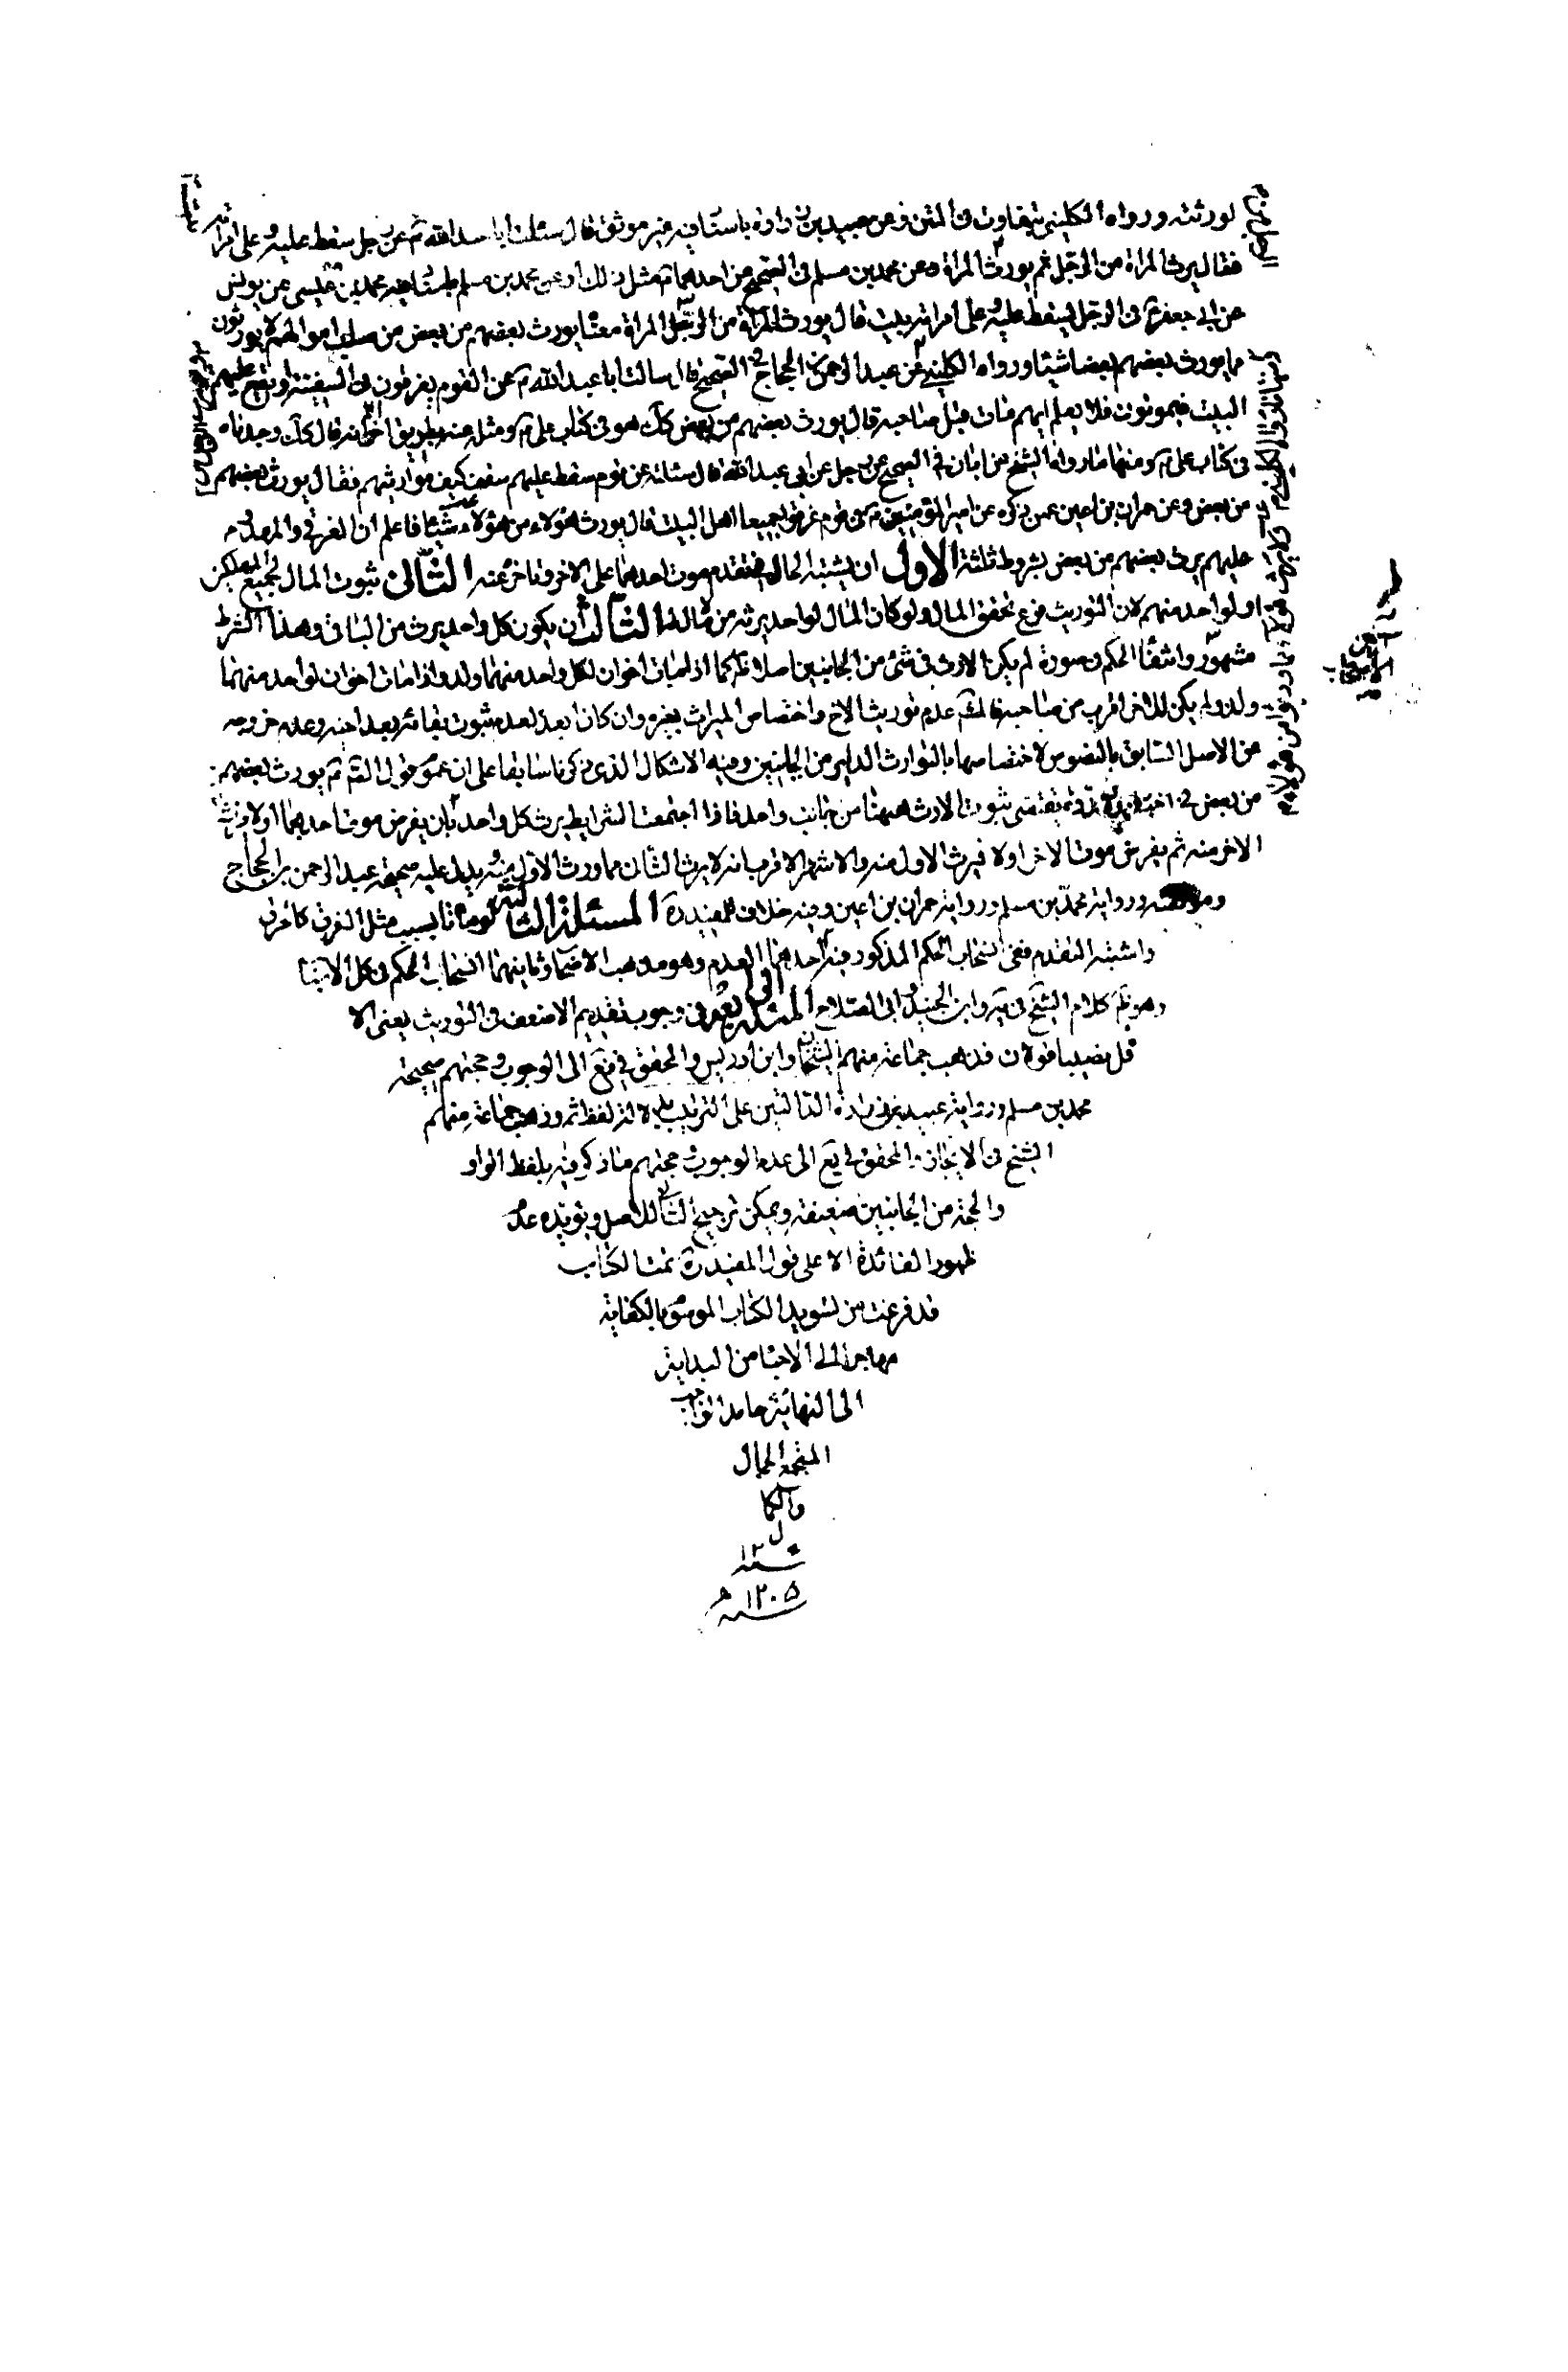 لورثته ورواه الكليني بتفاوت في المتن وعن عبيد بن زرارة باسناد فيه غير موثق قال سئلت ابا عبد الله ع عن رجل سقط عليه وعلى امراته
فقال يورث المراة من الرجل ثم يورث الرجل من المراة وعن محمد بن مسلم في الصحيح عن احدهما ع مثل ذلك وعن محمد بن مسلم باسناد فيه محمد بن عيسى عن يونس
عن ابي جعفر ع في الرجل يسقط عليه وعلى امراته بيت قال يورث المراة من الرجل والرجل من المراة معناه يورث بعضهم من بعض من صلب اموالهم لا يورثون
مما يورث بعضهم بعضا شيئا ورواه الكليني وعن عبد الرحمن بن الحجاج في الصحيح قال سالت ابا عبد الله ع عن القوم يغرقون في السفينة او يقع عليهم
البيت فيموتون فلا يعلم ايهم مات قبل صاحبه قال يورث بعضهم من بعض كذلك هو في كتاب علي ع ومثله عنه بطريق اخر الا انه قال كذلك وجدناه
في كتاب علي ع ومنها ما رواه الشيخ عن ابان في الصحيح عن رجل عن ابي عبد الله قال سئلته عن قوم سقط عليهم سقف كيف مواريثهم فقال يورث بعضهم
من بعض وعن حمران بن اعين عمن ذكره عن امير المؤمنين ع في قوم غرقوا جميعا اهل البيت قال يورث هؤلاء من هؤلاء شيئا فاعلم ان الغرقى والمهدوم
عليهم يرث بعضهم من بعض بشروط ثلثة الاول ان يشتبه الحال في تقدم موت احدهما على الاخر وتاخره عنه الثاني ثبوت المال لجميع المهلكين
او لواحد منهم لان التوريث فرع تحقق المال ولو كان المال لواحد يرثه من لا مال له الثالث ان يكون كل واحد يرث من الباقي وهذا الشرط
مشهور وانتفاء الحكم في صورة لم يكن الارث في شئ من الجانبين اصلا ظ كما اذا مات اخوان لكل واحد منهما ولد واذا مات اخوان لواحد منهما
ولد ولم يكن للاخر اقرب من صاحبه فالمشهور عدم توريث الاخ واختصاص الميراث بغيره وان كان ابعد لعدم ثبوت بقائه بعد اخيه وعدم خروجه
من الاصل السابق بالنصوص لاختصاصها بالتوارث الدائر من الجانبين وفيه الاشكال الذي ذكرنا سابقا على ان عموم قول الصادق ع يورث بعضهم
من بعض في يقتضي ثبوت الارث ههنا من جانب واحد فاذا اجتمعت الشرايط يرث كل واحد بان يفرض موت احدهما اولا ويرث
الاخر منه ثم يفرض موت الاخر اولا فيرث الاول منه والاشهر الاقرب انه لا يرث الثاني مما ورث الاول منه ويدل عليه صحيحة عبد الرحمن بن الحجاج
ورواية محمد بن مسلم ورواية حمران بن اعين وفيه خلاف للمفيد ره المسئلة الثالثة لو ماتا بسبب مثل الغرق كالحرق
واشتبه التقدم ففي انسحاب الحكم المذكور فيه قولان احدهما العدم وهو مذهب الاصحاب وثانيهما انسحاب الحكم في كل الاسباب
وهو ظ كلام الشيخ في ية وابن الجنيد وابي الصلاح المسئلة الرابعة في وجوب تقديم الاضعف في التوريث يعني الا
قل نصيبا قولان فذهب جماعة منهم الشيخان وابن ادريس والمحقق في فع الى الوجوب وحجتهم صحيحة
محمد بن مسلم ورواية عبيد بن زرارة الدالتين على الترتيب بدلالة لفظة ثم وذهب جماعة منهم
الشيخ في الايجاز والمحقق في يع الى عدم الوجوب وحجتهم ما ذكر فيه بلفظ الواو
والحجة من الجانبين ضعيفة ويمكن ترجيح الثاني للاصل ويؤيده عدم
ظهور الفائدة الا على قول المفيد ره تمت الكتاب
قد فرغت من تسويد الكتاب الموسوم بالكفاية
من البداية
الى النهاية حامدا لواجب
المجمع الجمال
والكما
ل
سنة ١٢
سنة ١٢٠٥ ه